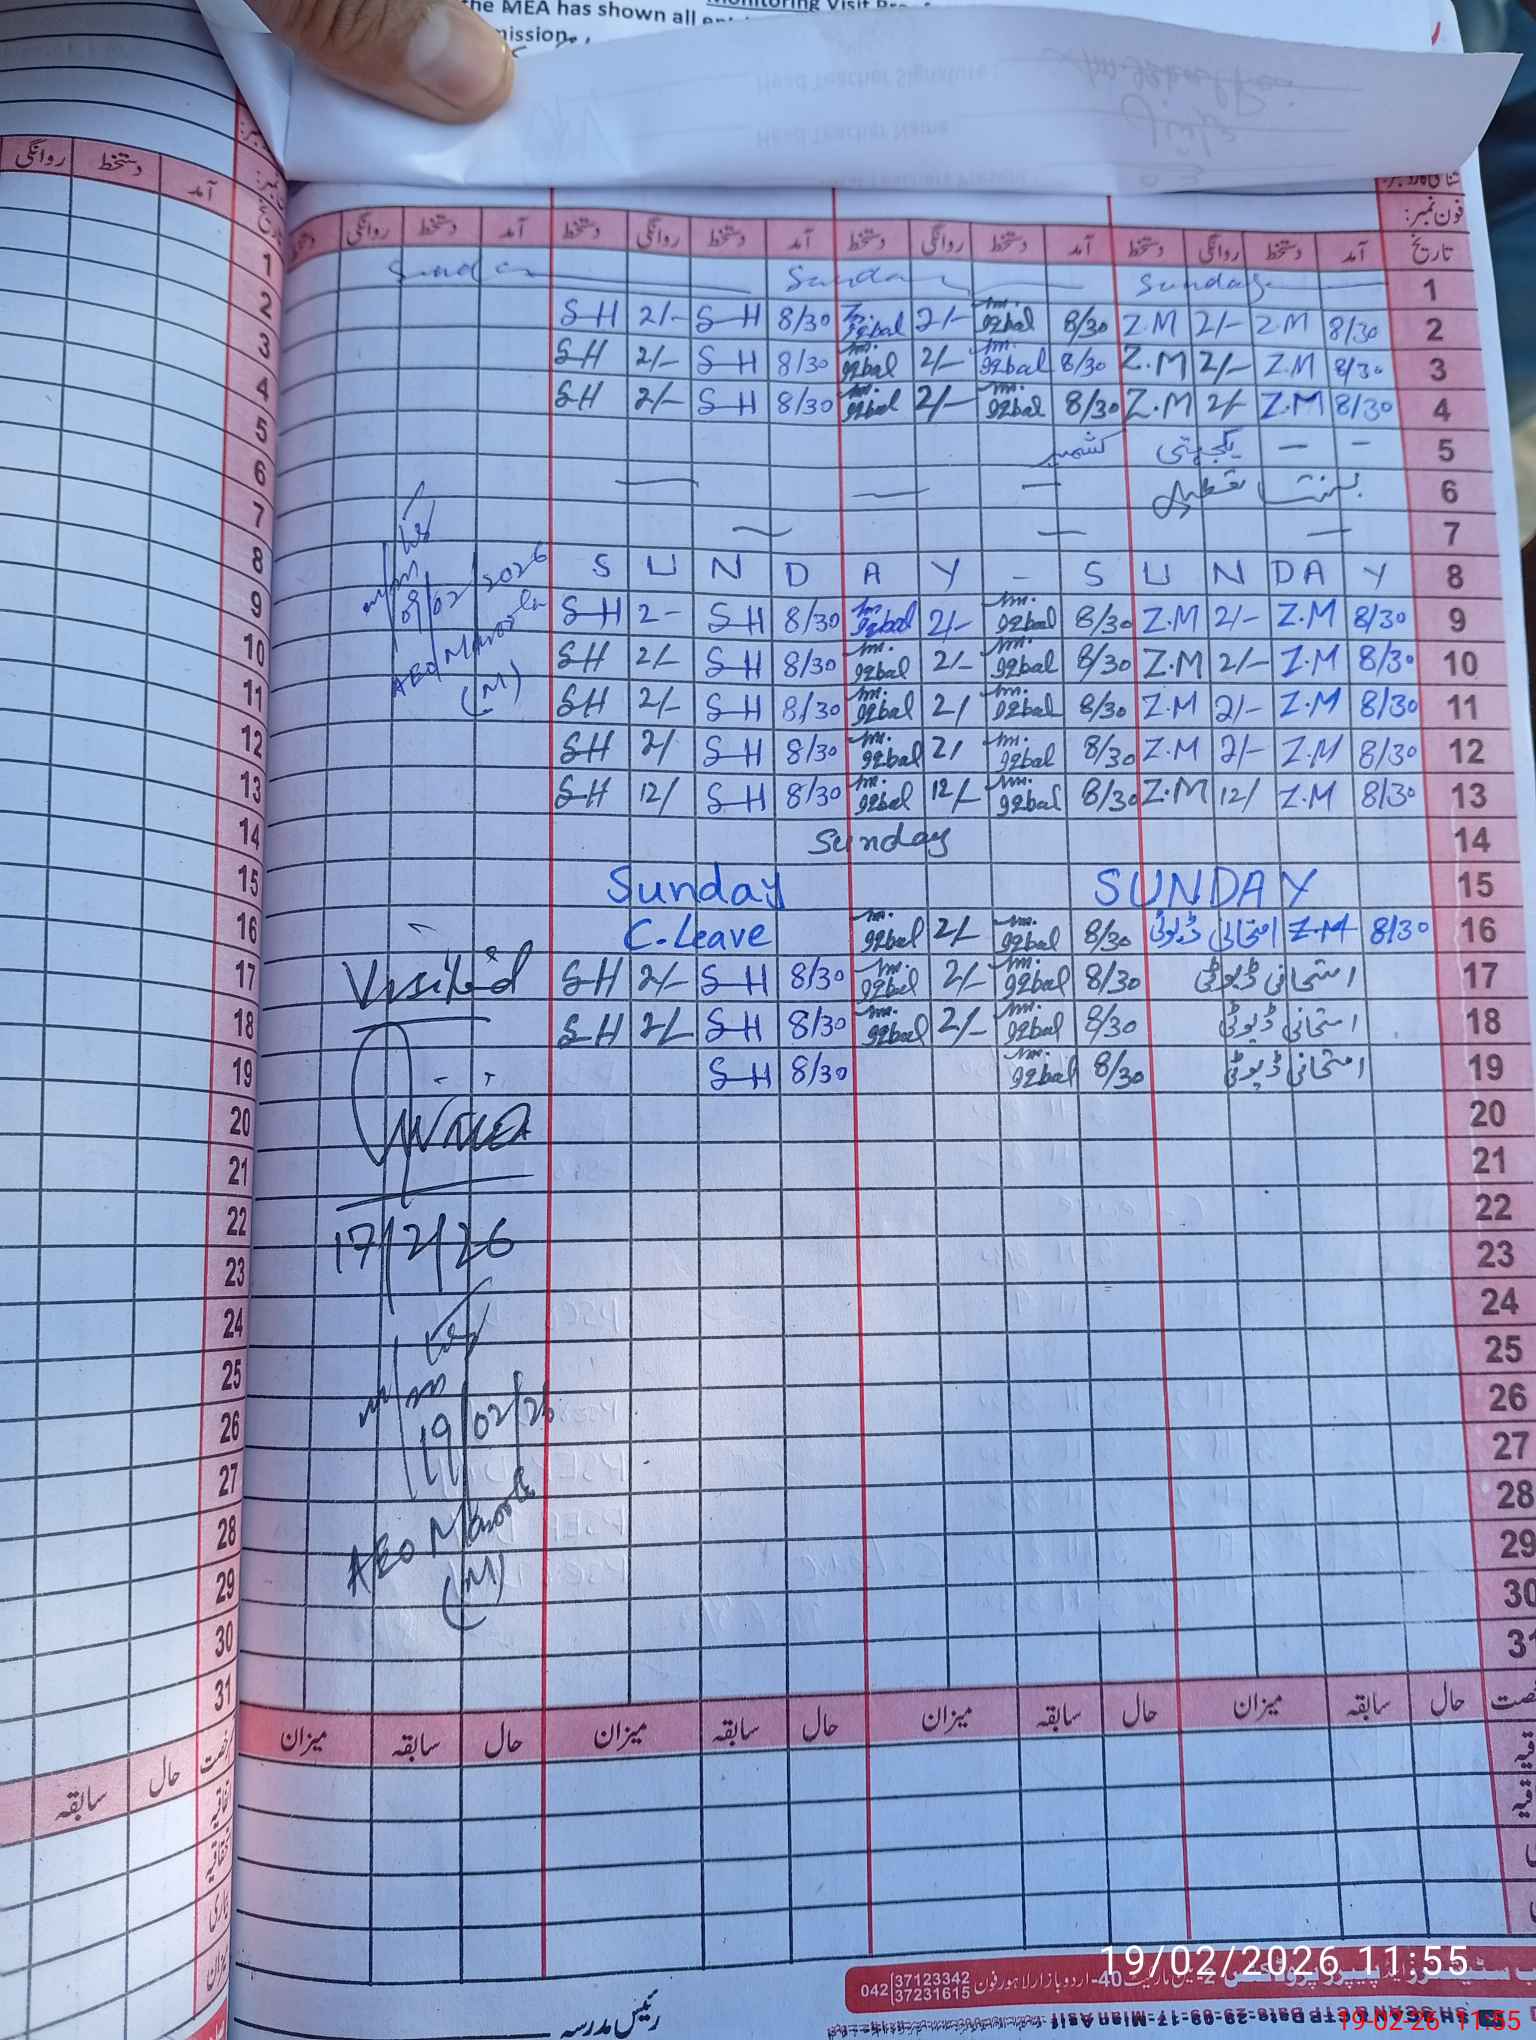 the MEA has shown all
mission.
Monitoring Visit
Head Teacher Signature
Head Teacher Name
فون نمبر:
تاریخ آمد دستخط روانگی دستخط آمد دستخط روانگی دستخط آمد دستخط روانگی دستخط آمد دستخط روانگی دستخط
روانگی دستخط آمد
1 Sunday Sunday Sunday
2 8/30 Z.M 2/- Z.M 8/30 m. Iqbal 2/- m. Iqbal 8/30 S H 2/- S H
3 8/30 Z.M 2/- Z.M 8/30 m. Iqbal 2/- m. Iqbal 8/30 S H 2/- S H
4 8/30 Z.M 2/- Z.M 8/30 m. Iqbal 2/- m. Iqbal 8/30 S H 2/- S H
5 - - یکجہتی کشمیر
6 بسنت تعطیل — — —
7 — — —
8 S U N D A Y - S U N D A Y
9 8/30 Z.M 2/- Z.M 8/30 m. Iqbal 2/- m. Iqbal 8/30 S H 2- S H
10 8/30 Z.M 2/- Z.M 8/30 m. Iqbal 2/- m. Iqbal 8/30 S H 2/- S H
11 8/30 Z.M 2/- Z.M 8/30 m. Iqbal 2/ m. Iqbal 8/30 S H 2/- S H
12 8/30 Z.M 2/- Z.M 8/30 m. Iqbal 2/ m. Iqbal 8/30 S H 2/ S H
13 8/30 Z.M 12/ Z.M 8/30 m. Iqbal 12/- m. Iqbal 8/30 S H 12/ S H
14 Sunday
15 SUNDAY Sunday
16 8/30 Z.M امتحانی ڈیوٹی 8/30 m. Iqbal 2/- m. Iqbal C.Leave
17 امتحانی ڈیوٹی 8/30 m. Iqbal 2/- m. Iqbal 8/30 S H 2/- S H
18 امتحانی ڈیوٹی 8/30 m. Iqbal 2/- m. Iqbal 8/30 S H 2/- S H
19 امتحانی ڈیوٹی 8/30 m. Iqbal 8/30 S H
20
21
22
23
24
25
26
27
28
29
30
31
09/02/2026
AEO
(M)
Visited
17/2/26
19/02/26
AEO
(M)
حال سابقہ میزان حال سابقہ میزان حال سابقہ میزان حال سابقہ میزان
1
2
3
4
5
6
7
8
9
10
11
12
13
14
15
16
17
18
19
20
21
22
23
24
25
26
27
28
29
30
31
حال سابقہ
رئیس مدرسہ
40-اردو بازار لاہور فون 042 37123342
37231615
19/02/2026 11:55
19-02-26 11:55